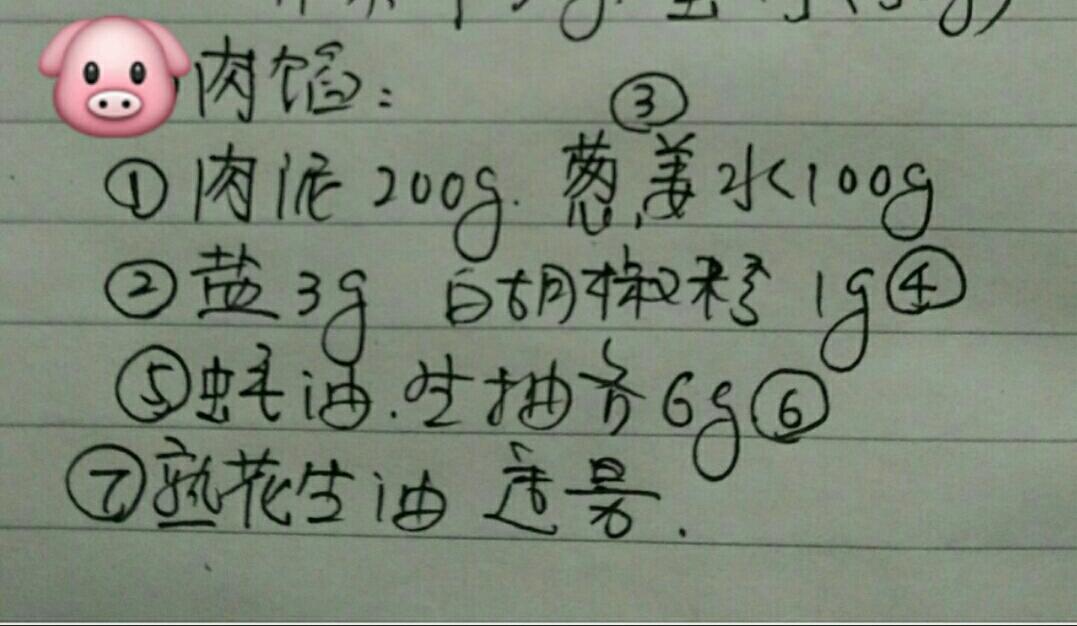 肉馅:
③
①肉泥200g. 葱,姜水100g
②盐3g 白胡椒粉1g④
⑤蚝油.生抽各6g⑥
⑦熟花生油 适量.